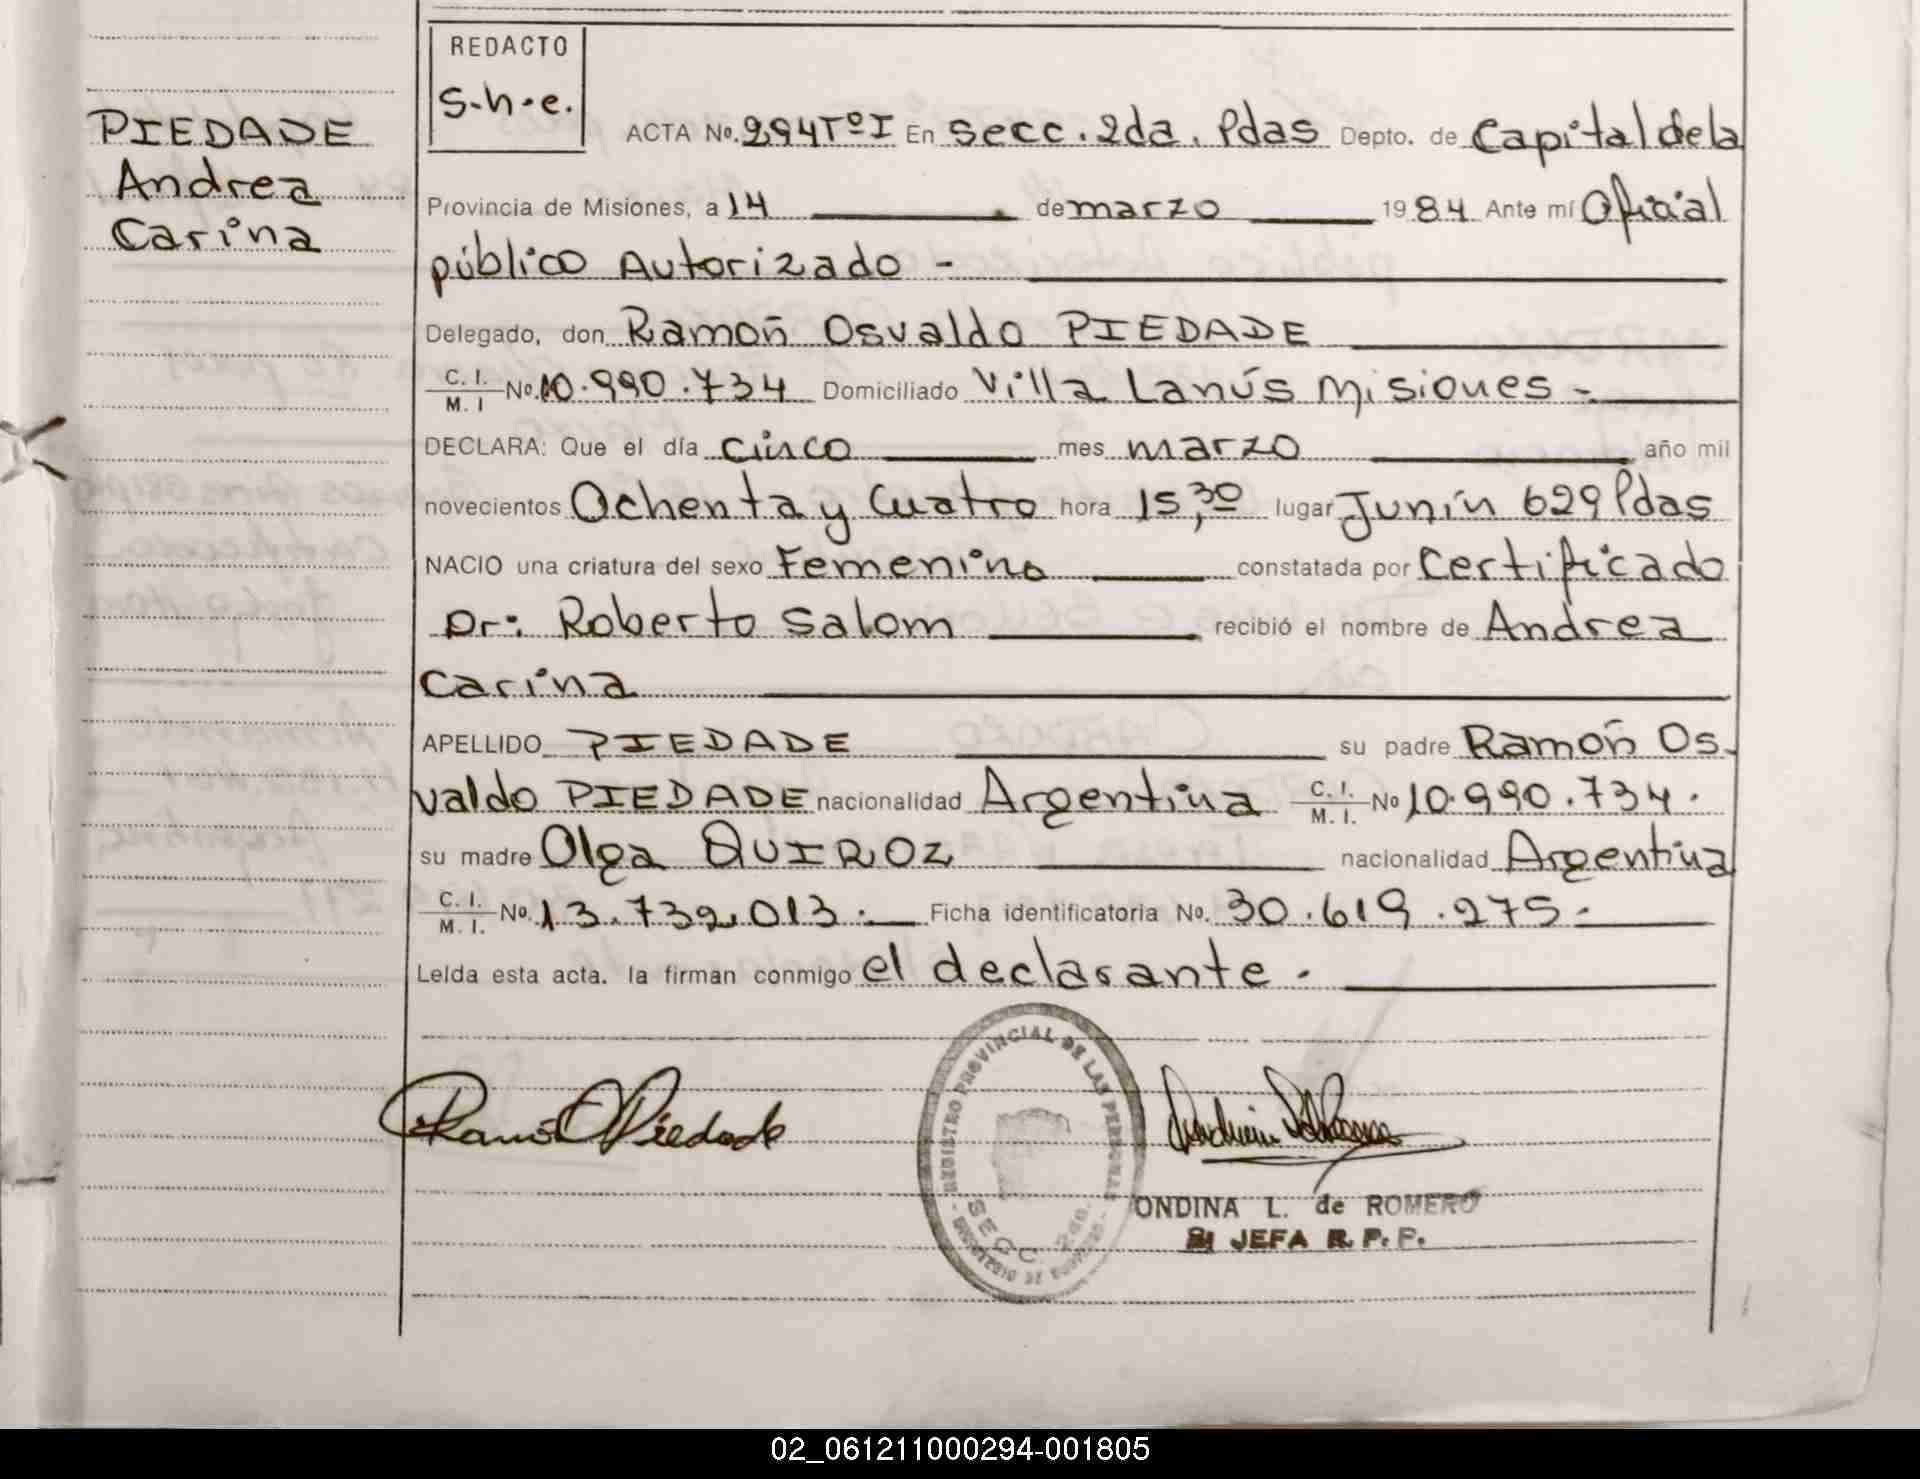 REDACTO
s.h.e.
PIEDADE
Andrea
Carina
ACTA No. 294 Tº I En secc. 2da. Pdas Depto. de Capital de la
Provincia de Misiones, a 14 de marzo 1984 Ante mí Oficial
público Autorizado -
Delegado, don Ramón Osvaldo PIEDADE
C. I. M. I No. 10.990.734 Domiciliado Villa Lanús Misiones -
DECLARA: Que el día cinco mes marzo año mil
novecientos Ochenta y Cuatro hora 15,30 lugar Junín 629 Pdas
NACIO una criatura del sexo Femenino constatada por Certificado
Dr: Roberto Salom recibió el nombre de Andrea
Carina
APELLIDO PIEDADE su padre Ramón Os-
valdo PIEDADE nacionalidad Argentina C. I. M. I. No 10.990.734.
su madre Olga QUIROZ nacionalidad Argentina
C. I. M. I. No. 13.732.013.- Ficha identificatoria No. 30.619.275.-
Leída esta acta. la firman conmigo el declarante.
Ramón O Piedade
REGISTRO PROVINCIAL DE LAS PERSONAS
SECC. 2da.
ONDINA L. de ROMERO
JEFA R. P. P.
02_061211000294-001805